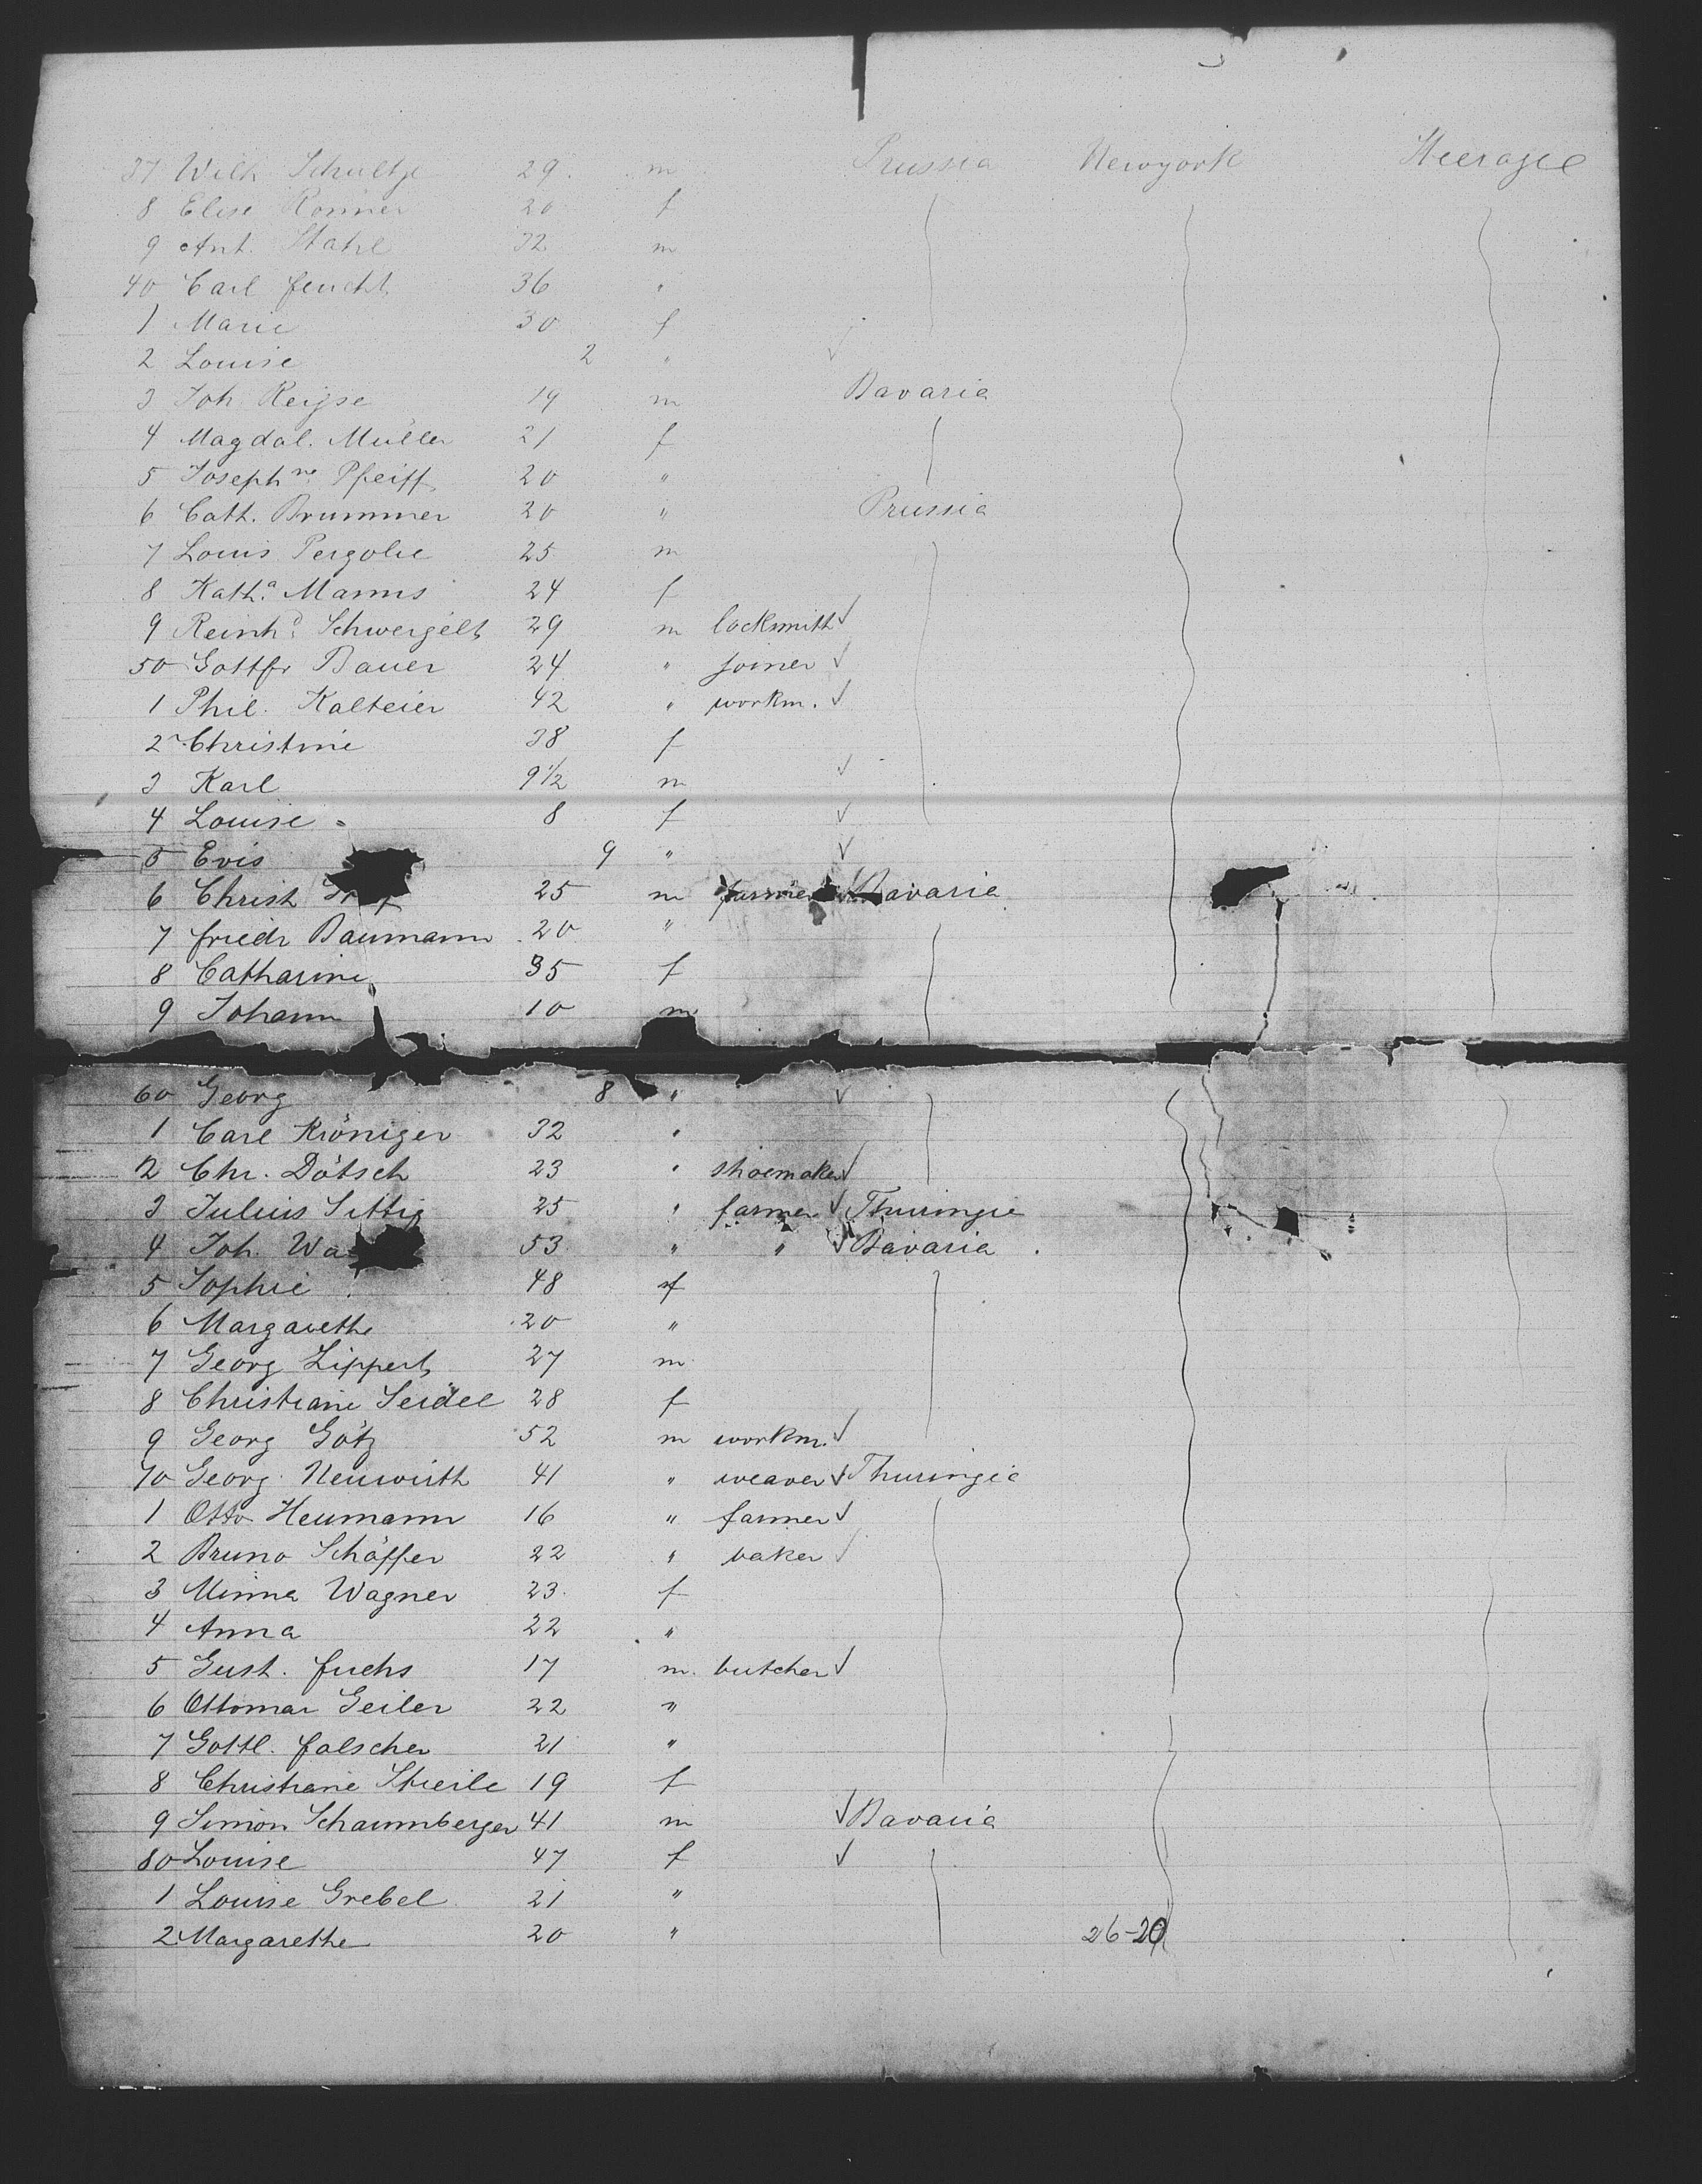 37 Wilh Schultze 29 m Prussia Newyork Steerage
8 Elise Ronner 20 f
9 Ant. Stahl 32 m
40 Carl feucht 36 "
1 Marie 30 f
2 Louise 2 " √
3 Joh Reijse 19 m Bavaria
4 Magdal. Müller 21 f
5 Josephne Pfeiff 20 "
6 Cath. Brummer 20 " Prussia
7 Louis Pergolie 25 m
8 Katha Manns 24 f
9 Reinhd Schweigelt 29 m locksmith √
50 Gottfr Bauer 24 " joiner √
1 Phil. Kalteier 42 " workm. √
2 Christine 38 f
3 Karl 9½ m √
4 Louise 8 f √
5 Evis 9 " √
6 Christ 25 m farmer √ Bavaria
7 friedr Baumann 20 "
8 Catharine 35 f
9 Johann 10 m
60 Georg 8 " √
1 Carl Kröniger 32 "
2 Chr. Dötsch 23 " shoemaker √
3 Julius Sittig 25 " farmer √ Thuringie
4 Joh. Wa 53 " " √ Bavaria
5 Sophie 48 f
6 Margarethe 20 "
7 Georg Lippert 27 m
8 Christiane Seidel 28 f
9 Georg Götz 52 m workm. √
70 Georg Neuwirth 41 " weaver √ Thuringie
1 Otto Heumann 16 " farmer √
2 Bruno Schäffer 22 " baker √
3 Minna Wagner 23 f
4 Anna 22 "
5 Gust. fuchs 17 m butcher √
6 Ottomar Geiler 22 "
7 Gottl. falscher 21 "
8 Christiane Streile 19 f
9 Simon Schaumberger 41 m √ Bavaria
80 Louise 47 f √
1 Louise Grebel 21 "
2 Margarethe 20 " 26-20